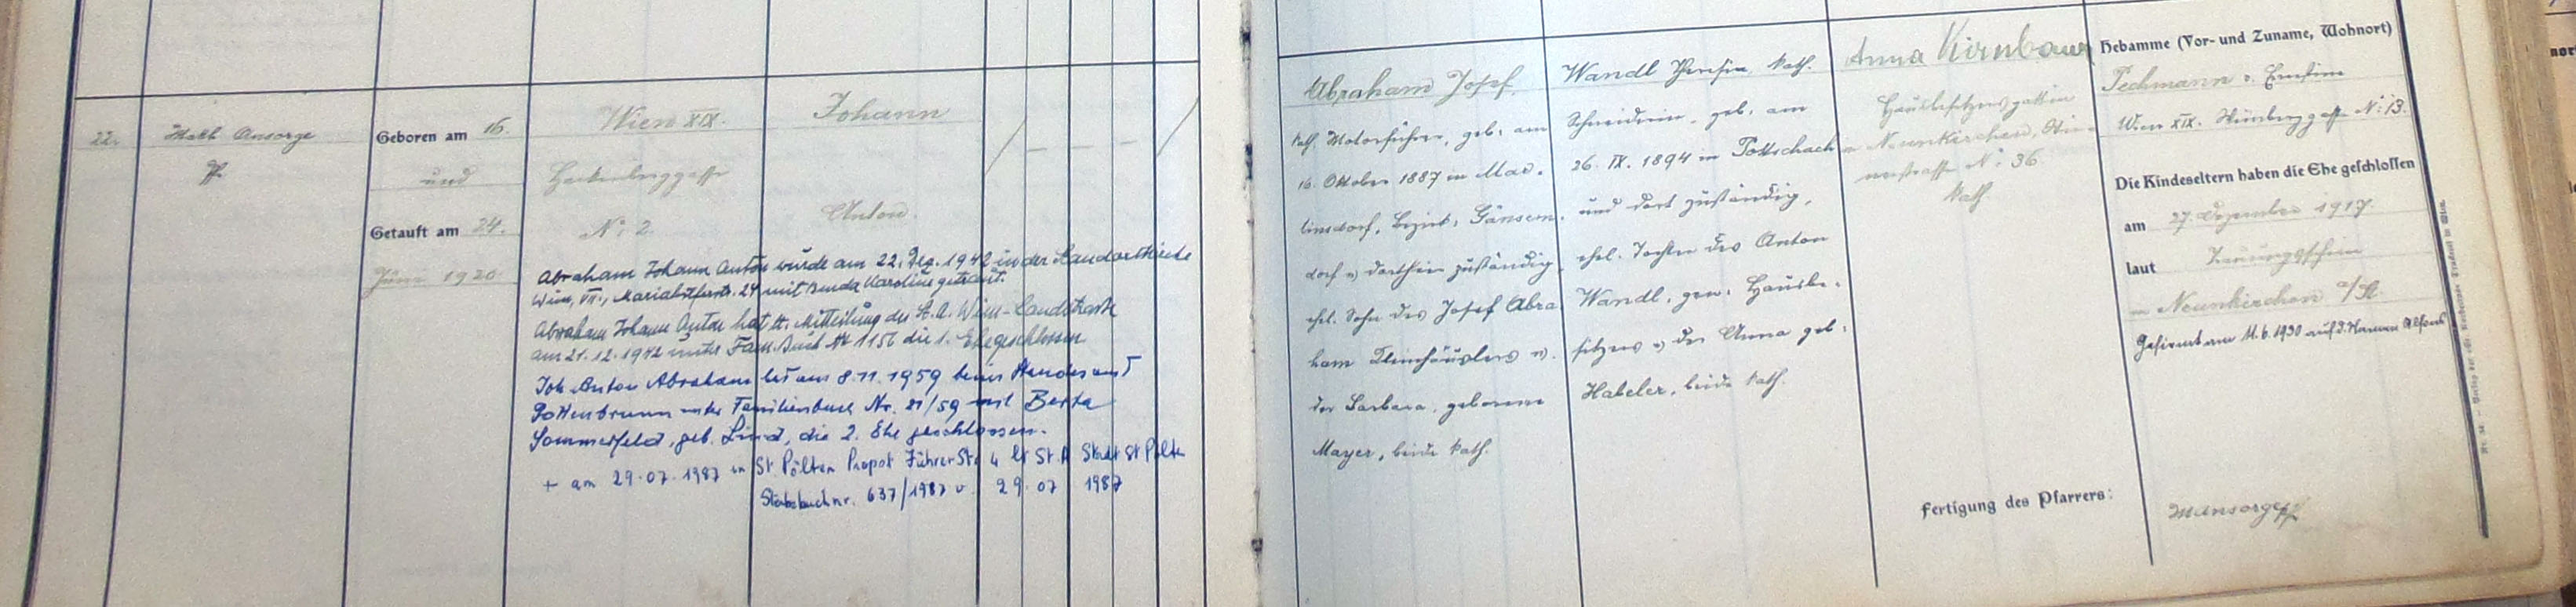 22.
Math Ansorge
Pf.
Geboren am 16.
und
Getauft am 24.
Juni 1920
Wien XIX.
Hackenberggasse
N: 2.
Johann
Anton.
Abraham Johann Anton wurde am 22. Dez. 1942 in der
Wien, VII., Mariahilferstr. 24 mit Benda Karoline getraut.
Abraham Johann Anton hat lt. Mitteilung des St. A. Wien-Landstraße
am 21.12.1942 unter Fam. Buch Nr 1156 die 1. Ehe geschlossen
Joh. Anton Abraham hat am 8.11.1959 beim Standesamt
Pottenbrunn unter Familienbuch Nr. 21/59 mit Berta
Sommerfeld, geb. Lind, die 2. Ehe geschlossen.
+ am 29.07.1987 in St Pölten Propst Führer Str 4 lt St. A Stadt St Pölten
Sterbebuchnr. 637/1987 v. 29.07 1987
Abraham Josef,
kath. Motorführer, geb. am
16. Oktober 1887 in Mar-
linsdorf, Bezirk: Gänsern-
dorf u. dorthin zuständig,
ehel. Sohn des Josef Abra
ham Kleinhäuslers u.
der Barbara, geborene
Mayer, beide kath.
Wandl Theresia, kath.
Schneiderin, geb. am
26. IX. 1894 in Pottschach
und dort zuständig,
ehel. Tochter des Anton
Wandl, gew. Hausbe-
sitzers u. der Anna geb.
Habeler, beide kath.
Anna Kirnbauer
Hausbesitzersgattin
Neunkirchen,
N: 36.
kath.
Hebamme (Vor- und Zuname, Wohnort)
Pechmann Ernstine
Wien XIX. N: 13.
Die Kindeseltern haben die Ehe geschlossen
am 27. Dezember 1917.
laut Trauungsschein
Neunkirchen a/St.
Gefirmt am 11.6.1930 auf d. Namen Alfons
Fertigung des Pfarrers:
MAnsorge Pf